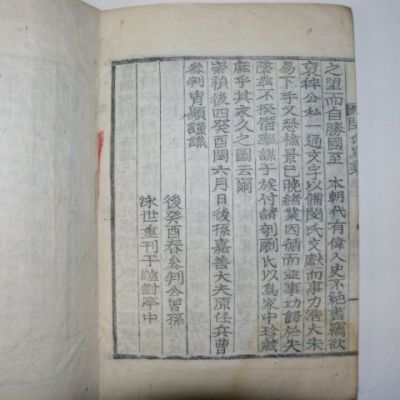 之望而自勝國至 本朝代有偉人史不絶書竊欲
裒稡公私一通文字以備閔氏文獻而事力浩大未
易下手又恐景已晩緖業因循而事功歸於失
墜不揆僭率謀于族付諸剞劂氏以爲家中珍藏
庶乎其永久之圖云爾
崇禎後四癸酉閏六月日後孫嘉善大夫原任兵曹
參判冑顯謹識
後癸酉春參判公曾孫
泳世重刊于遠對亭中